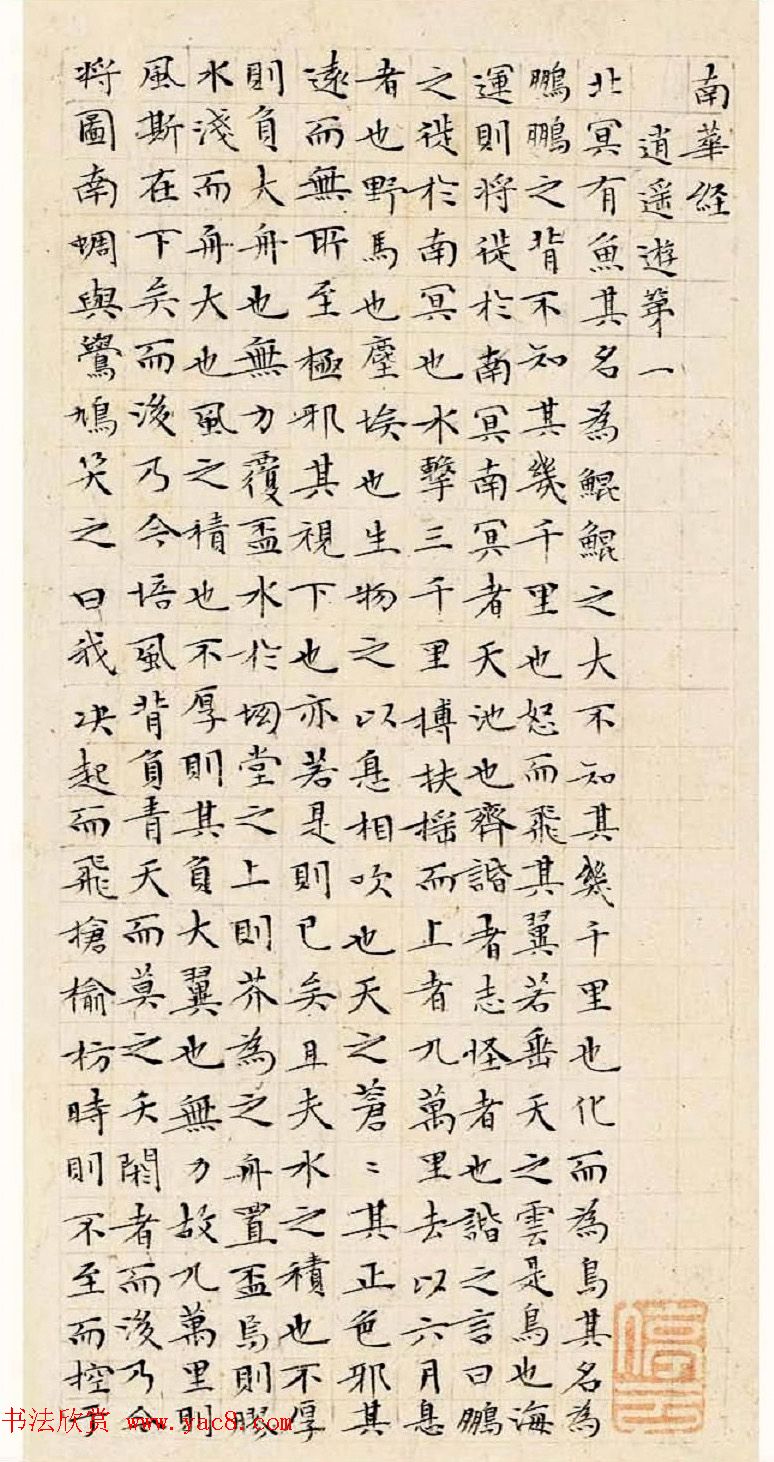 南華経
逍遥遊第一
北冥有魚其名為鯤鯤之大不知其幾千里也化而為鳥其名為
鵬鵬之背不知其幾千里也怒而飛其翼若垂天之雲是鳥也海
運則将徙於南冥南冥者天池也齊諧者志怪者也諧之言曰鵬
之徙於南冥也水擊三千里摶扶揺而上者九萬里去以六月息
者也野馬也塵埃也生物之以息相吹也天之蒼〻其正色邪其
遠而無所至極邪其視下也亦若是則已矣且夫水之積也不厚
則負大舟也無力覆盃水於坳堂之上則芥為之舟置盃焉則膠
水淺而舟大也風之積也不厚則其負大翼也無力故九萬里則
風斯在下矣而後乃今培風背負青天而莫之夭閼者而後乃今
将圖南蜩與鷽鳩笑之曰我决起而飛搶榆枋時則不至而控於
书法欣赏 www.yac8.com